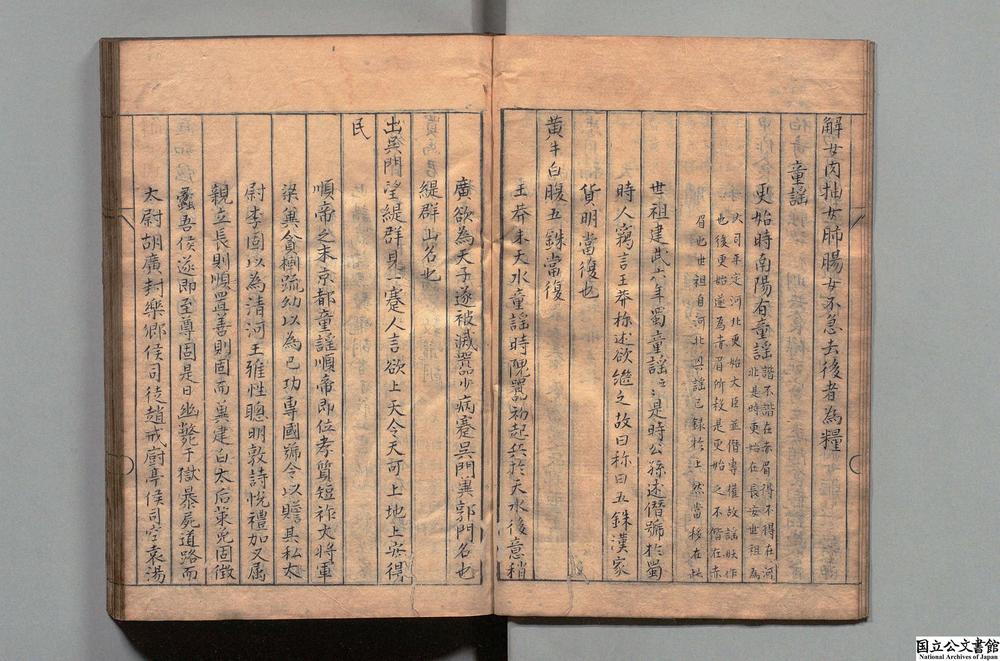 解女肉抽女肺腸女不急去後者為糧
童謡
更始時南陽有童謡 諧不諧在赤眉得不得在河
北是時更始在長安世祖為
大司馬平定河北更始大臣並僭專權故謡妖作
也後更始遂為赤眉所殺是更始之不諧在赤
眉也世祖自河北興謡已録於上然當移在此
世祖建武六年蜀童謡〻是時公孫述僭號於蜀
時人竊言王莽称述欲繼之故曰称曰五銖漢家
貨明當復也
黄牛白腹五銖當復
王莽末天水童謡時隗囂初起兵於天水後意稍
廣欲為天子遂被滅囂少病蹇呉門冀郭門名也
緹群山名也
出呉門望緹群見一蹇人言欲上天令天可上地上安得
民
順帝之末京都童謡順帝即位孝質短祚大將軍
梁冀貪樹疏幼以為己功專國號令以贍其私太
尉李固以為清河王雅性聰明敦詩悅禮加又属
親立長則順置善則固而冀建白太后策免固徴
蠡吾侯遂即至尊固是日幽斃于獄暴屍道路而
太尉胡廣封樂郷侯司徒趙戒厨亭侯司空袁湯
国立公文書館
National Archives of Japan